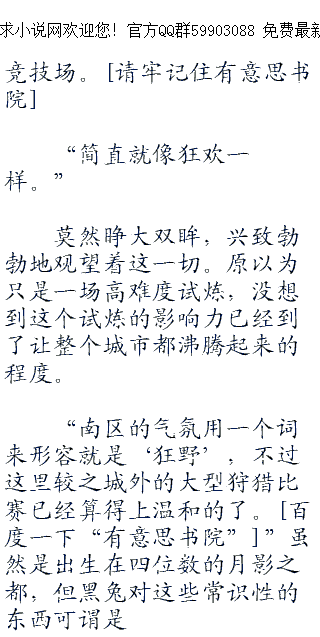 求小说网欢迎您! 官方QQ群59903088 免费最新
竞技场。[请牢记住有意思书
院]
“简直就像狂欢一
样。”
莫然睁大双眸，兴致勃
勃地观望着这一切。原以为
只是一场高难度试炼，没想
到这个试炼的影响力已经到
了让整个城市都沸腾起来的
程度。
“南区的气氛用一个词
来形容就是‘狂野’，不过
这里较之城外的大型狩猎比
赛已经算得上温和的了。[百
度一下“有意思书院”]”虽
然是出生在四位数的月影之
都，但黑兔对这些常识性的
东西可谓是